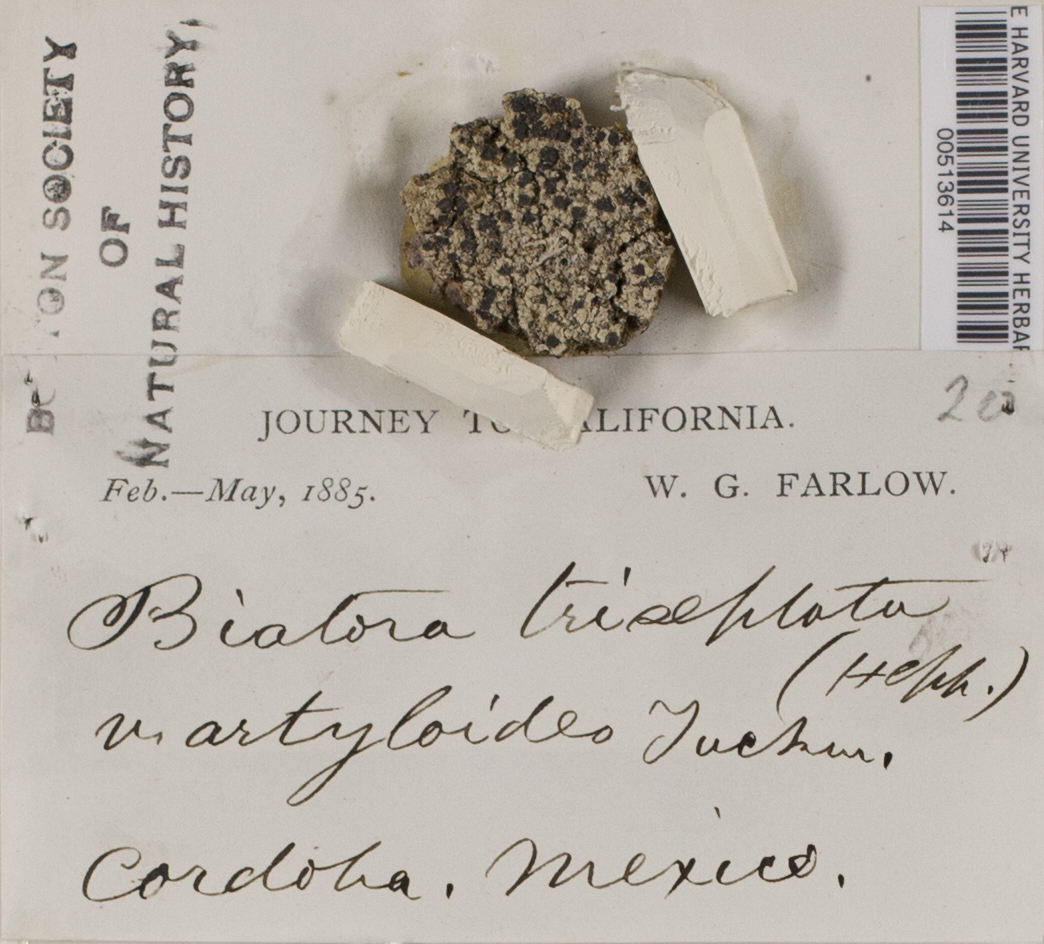 BOSTON SOCIETY
OF
NATURAL HISTORY,
E HARVARD UNIVERSITY HERBAR
00513614
JOURNEY TO CALIFORNIA.
20
Feb.—May, 1885.
W. G. FARLOW.
Biatora triseptata
(Hepp.)
v. artyloides Tuckm.
Cordoba. Mexico.